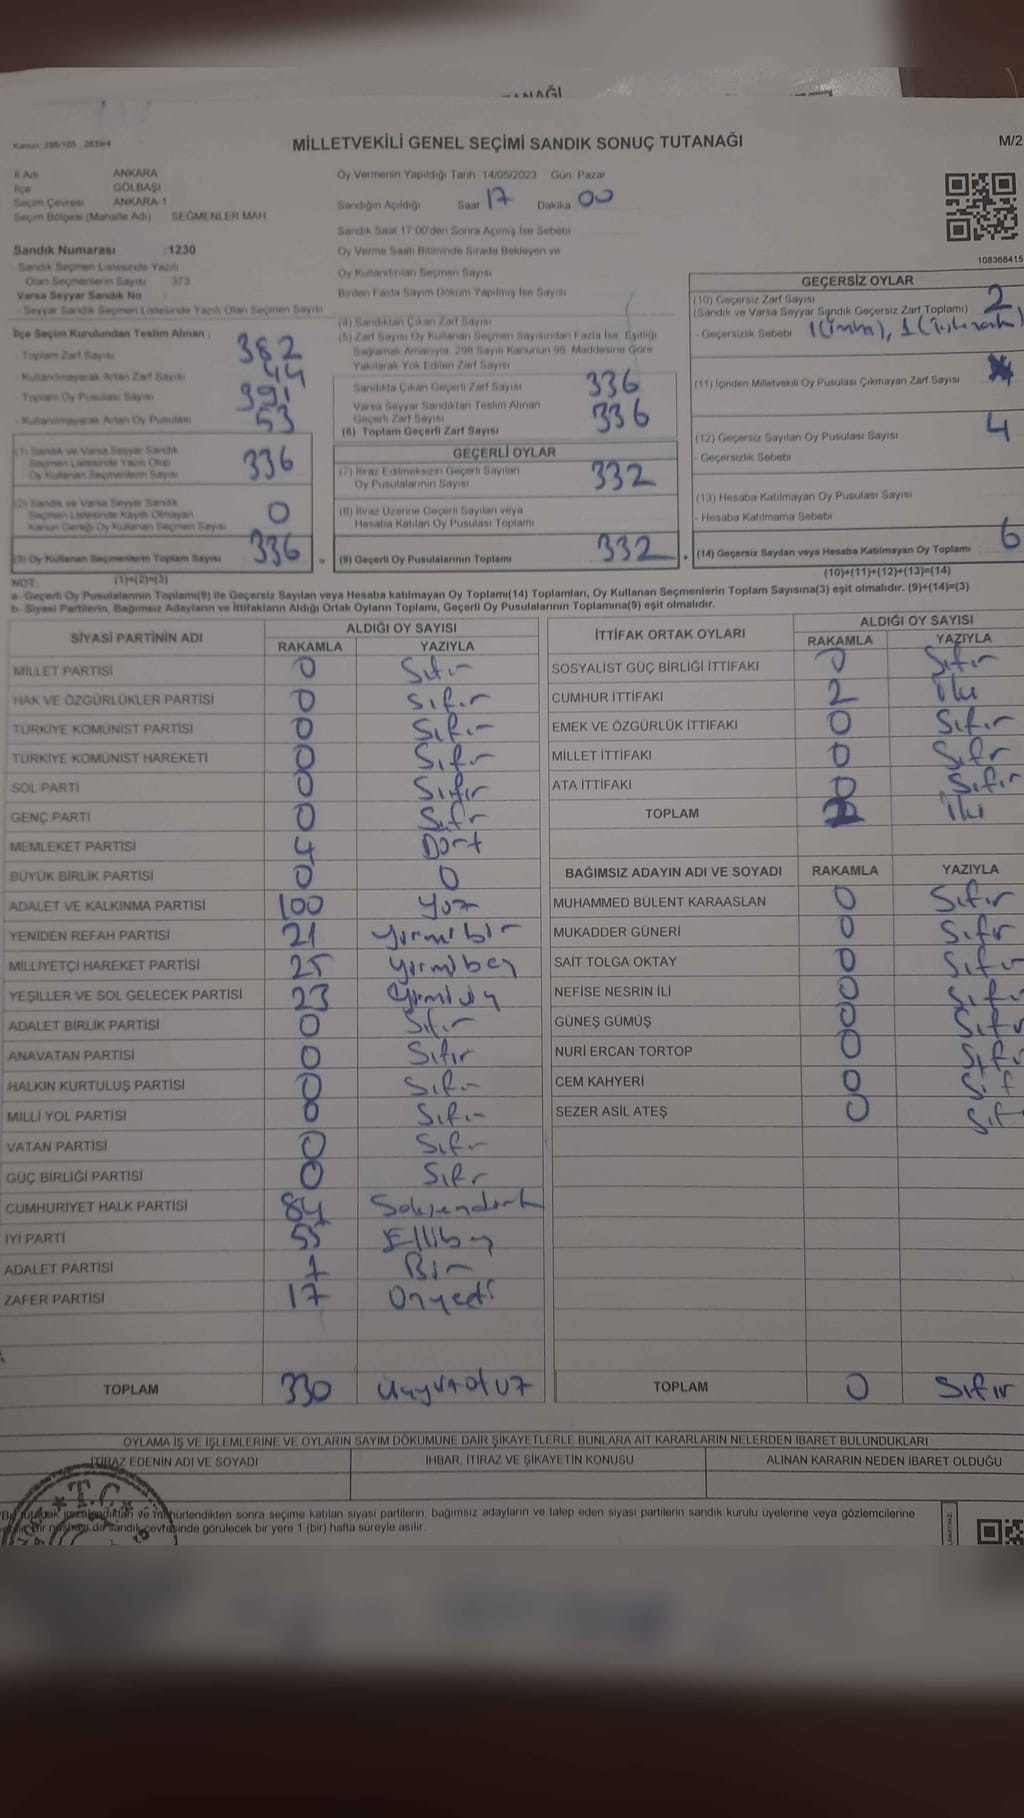 TANAĞI
Kanun: 298/105 , 2839/4
MİLLETVEKİLİ GENEL SEÇİMİ SANDIK SONUÇ TUTANAĞI
M/2
İl Adı ANKARA
İlçe GÖLBAŞI
Seçim Çevresi ANKARA-1
Seçim Bölgesi (Mahalle Adı) SEĞMENLER MAH
Oy Vermenin Yapıldığı Tarih 14/05/2023 Gün: Pazar
Sandığın Açıldığı Saat 17 Dakika 00
Sandık Saat 17:00'den Sonra Açılmış İse Sebebi
Oy Verme Saati Bitiminde Sırada Bekleyen ve
Oy Kullandırılan Seçmen Sayısı
Birden Fazla Sayım Döküm Yapılmış İse Sayısı
108368415
Sandık Numarası :1230
- Sandık Seçmen Listesinde Yazılı
Olan Seçmenlerin Sayısı 373
Varsa Seyyar Sandık No
- Seyyar Sandık Seçmen Listesinde Yazılı Olan Seçmen Sayısı
İlçe Seçim Kurulundan Teslim Alınan :
- Toplam Zarf Sayısı 382
- Kullanılmayarak Artan Zarf Sayısı 44
- Toplam Oy Pusulası Sayısı 391
- Kullanılmayarak Artan Oy Pusulası 53
(1) Sandık ve Varsa Seyyar Sandık
Seçmen Listesinde Yazılı Olup
Oy Kullanan Seçmenlerin Sayısı 336
(2) Sandık ve Varsa Seyyar Sandık
Seçmen Listesinde Kayıtlı Olmayan
Kanun Gereği Oy Kullanan Seçmen Sayısı 0
(3) Oy Kullanan Seçmenlerin Toplam Sayısı 336
(1)+(2)=(3)
(4) Sandıktan Çıkan Zarf Sayısı
(5) Zarf Sayısı Oy Kullanan Seçmen Sayısından Fazla İse, Eşitliği
Sağlamak Amacıyla, 298 Sayılı Kanunun 98. Maddesine Göre
Yakılarak Yok Edilen Zarf Sayısı
Sandıkta Çıkan Geçerli Zarf Sayısı 336
Varsa Seyyar Sandıktan Teslim Alınan
Geçerli Zarf Sayısı 336
(6) Toplam Geçerli Zarf Sayısı
GEÇERLİ OYLAR
(7) İtiraz Edilmeksizin Geçerli Sayılan
Oy Pusulalarının Sayısı 332
(8) İtiraz Üzerine Geçerli Sayılan veya
Hesaba Katılan Oy Pusulası Toplamı
= (9) Geçerli Oy Pusulalarının Toplamı 332
GEÇERSİZ OYLAR
(10) Geçersiz Zarf Sayısı
(Sandık ve Varsa Seyyar Sandık Geçersiz Zarf Toplamı) 2
- Geçersizlik Sebebi 1 (imha), 1
(11) İçinden Milletvekili Oy Pusulası Çıkmayan Zarf Sayısı
(12) Geçersiz Sayılan Oy Pusulası Sayısı 4
- Geçersizlik Sebebi
(13) Hesaba Katılmayan Oy Pusulası Sayısı
- Hesaba Katılmama Sebebi
+ (14) Geçersiz Sayılan veya Hesaba Katılmayan Oy Toplamı 6
(10)+(11)+(12)+(13)=(14)
NOT:
a- Geçerli Oy Pusulalarının Toplamı(9) ile Geçersiz Sayılan veya Hesaba katılmayan Oy Toplamı(14) Toplamları, Oy Kullanan Seçmenlerin Toplam Sayısına(3) eşit olmalıdır. (9)+(14)=(3)
b- Siyasi Partilerin, Bağımsız Adayların ve İttifakların Aldığı Ortak Oyların Toplamı, Geçerli Oy Pusulalarının Toplamına(9) eşit olmalıdır.
SİYASİ PARTİNİN ADI ALDIĞI OY SAYISI
RAKAMLA YAZIYLA
MİLLET PARTİSİ 0 Sıfır
HAK VE ÖZGÜRLÜKLER PARTİSİ 0 Sıfır
TÜRKİYE KOMÜNİST PARTİSİ 0 Sıfır
TÜRKİYE KOMÜNİST HAREKETİ 0 Sıfır
SOL PARTİ 0 Sıfır
GENÇ PARTİ 0 Sıfır
MEMLEKET PARTİSİ 4 Dört
BÜYÜK BİRLİK PARTİSİ 0 0
ADALET VE KALKINMA PARTİSİ 100 Yüz
YENİDEN REFAH PARTİSİ 21 Yirmibir
MİLLİYETÇİ HAREKET PARTİSİ 25 Yirmibeş
YEŞİLLER VE SOL GELECEK PARTİSİ 23 Yirmiüç
ADALET BİRLİK PARTİSİ 0 Sıfır
ANAVATAN PARTİSİ 0 Sıfır
HALKIN KURTULUŞ PARTİSİ 0 Sıfır
MİLLİ YOL PARTİSİ 0 Sıfır
VATAN PARTİSİ 0 Sıfır
GÜÇ BİRLİĞİ PARTİSİ 0 Sıfır
CUMHURİYET HALK PARTİSİ 84 Seksendört
İYİ PARTİ 55 Ellibeş
ADALET PARTİSİ 1 Bir
ZAFER PARTİSİ 17 Onyedi
TOPLAM 330 Üçyüzotuz
İTTİFAK ORTAK OYLARI ALDIĞI OY SAYISI
RAKAMLA YAZIYLA
SOSYALİST GÜÇ BİRLİĞİ İTTİFAKI 0 Sıfır
CUMHUR İTTİFAKI 2 İki
EMEK VE ÖZGÜRLÜK İTTİFAKI 0 Sıfır
MİLLET İTTİFAKI 0 Sıfır
ATA İTTİFAKI 0 Sıfır
TOPLAM 2 İki
BAĞIMSIZ ADAYIN ADI VE SOYADI RAKAMLA YAZIYLA
MUHAMMED BÜLENT KARAASLAN 0 Sıfır
MUKADDER GÜNERİ 0 Sıfır
SAİT TOLGA OKTAY 0 Sıfır
NEFİSE NESRİN İLİ 0 Sıfır
GÜNEŞ GÜMÜŞ 0 Sıfır
NURİ ERCAN TORTOP 0 Sıfır
CEM KAHYERİ 0 Sıf
SEZER ASİL ATEŞ 0 Sıf
TOPLAM 0 Sıfır
OYLAMA İŞ VE İŞLEMLERİNE VE OYLARIN SAYIM DÖKÜMÜNE DAİR ŞİKAYETLERLE BUNLARA AİT KARARLARIN NELERDEN İBARET BULUNDUKLARI
İTİRAZ EDENİN ADI VE SOYADI İHBAR, İTİRAZ VE ŞİKAYETİN KONUSU ALINAN KARARIN NEDEN İBARET OLDUĞU
T.C.
Bu tutanak imzalandıktan ve mühürlendikten sonra seçime katılan siyasi partilerin, bağımsız adayların ve talep eden siyasi partilerin sandık kurulu üyelerine veya gözlemcilerine
sandık çevresinde görülecek bir yere 1 (bir) hafta süreyle asılır.